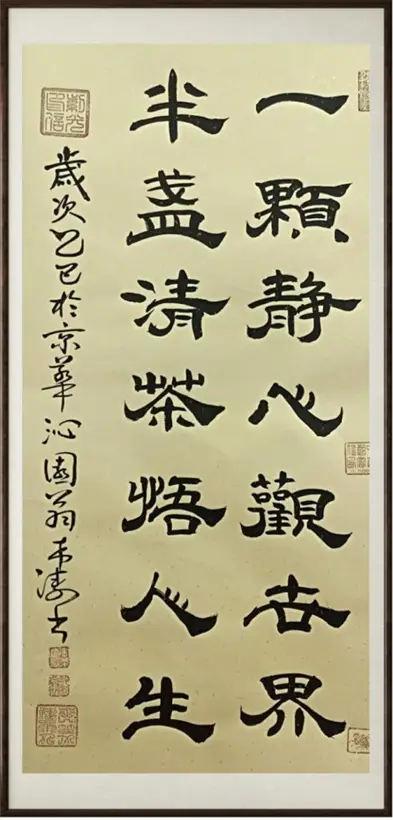 一顆静心觀世界
半盞清茶悟人生
歲次乙巳於京華沁園翁